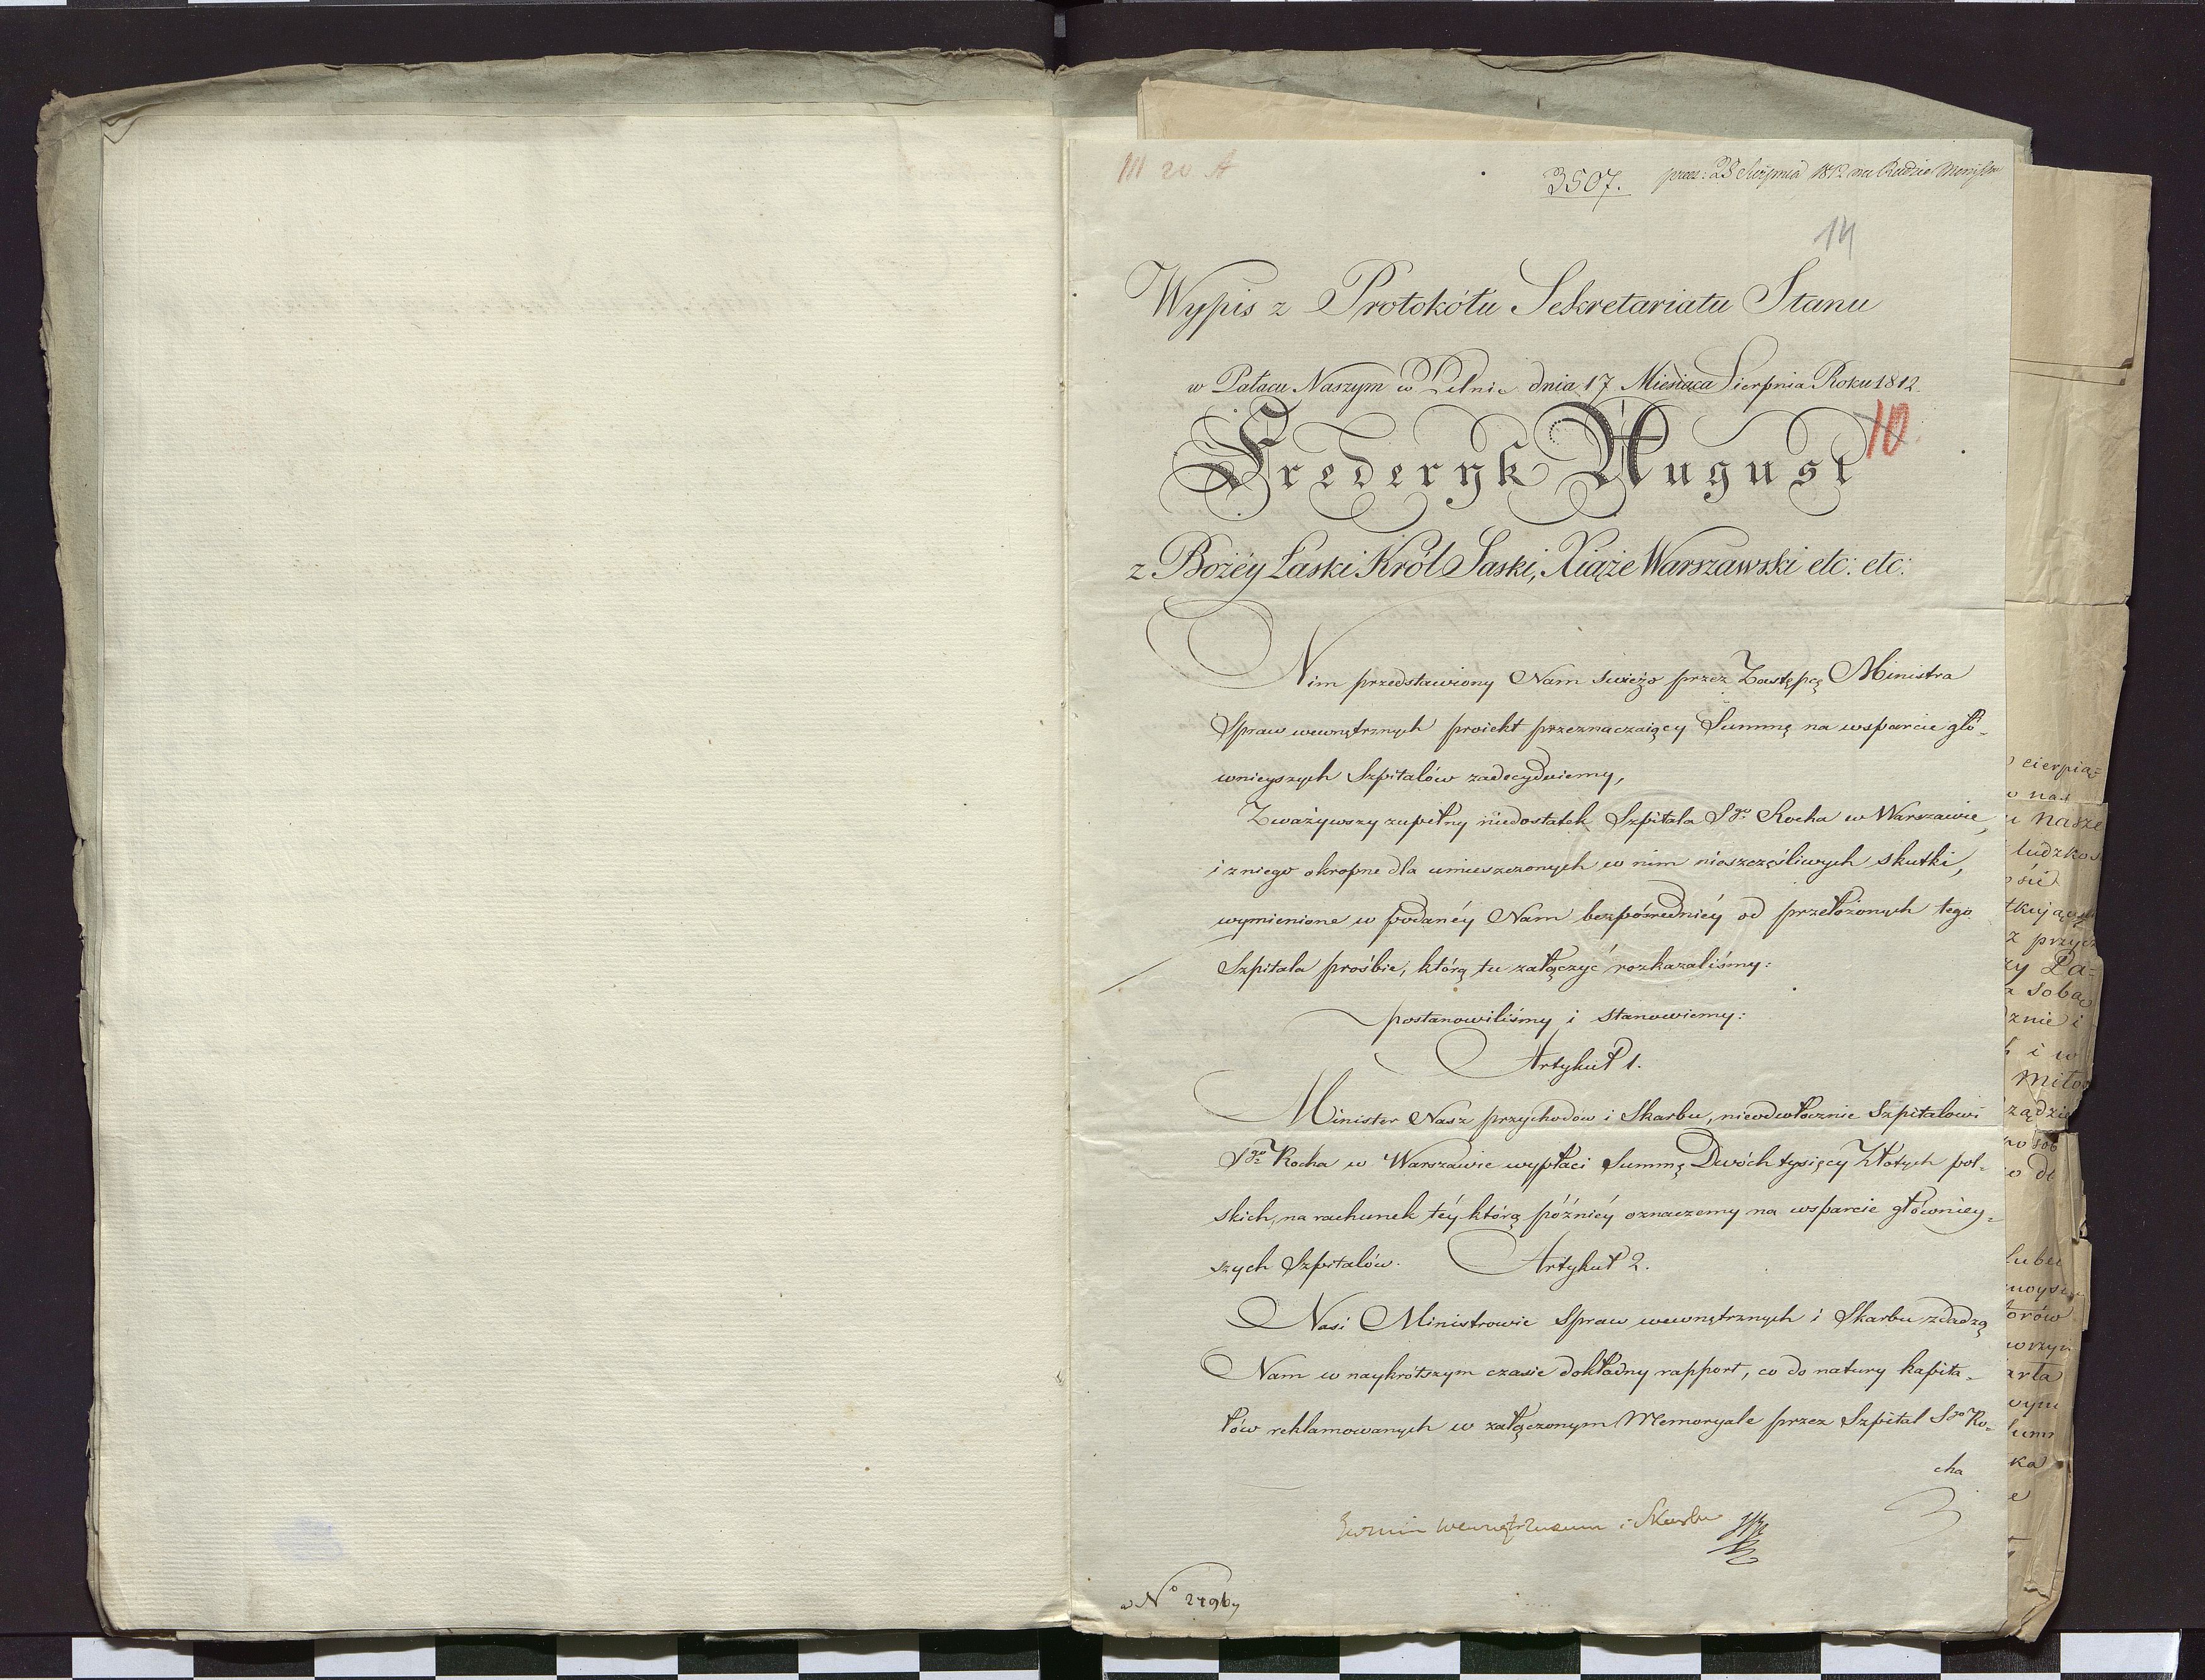 III 20 A
3507. prez: 23 Sierpnia 1812 na Radzie Ministr
14
Wypis z Protokółu Sekretariatu Stanu
w Pałacu Naszym w Pilnic dnia 17 Miesiąca Sierpnia Roku 1812.
10
Frederyk August
z Bożéy Łaski Król Saski, Xiąże Warszawski etc: etc:
Nim przedstawiony Nam świeżo przez Zastępcę Ministra
Spraw wewnętrznych proiekt przeznaczaiący Summę na wsparcie głó-
wnieyszych Szpitalów zadecyduiemy,
Zważywszy zupełny niedostatek Szpitala Sgo Rocha w Warszawie,
i z niego okropne dla umieszczonych w nim nieszczęśliwych skutki,
wymienione w podanéy Nam bezpośredniéy od przełożonych tego
Szpitala prośbie, którą tu załączyć rozkazaliśmy:
postanowiliśmy i stanowiemy:
Artykuł 1.
Minister Nasz przychodów i Skarbu, nieodwłocznie Szpitalowi
Sgo Rocha w Warszawie wypłaci Summę Dwóch tysięcy Złotych pol-
skich, na rachunek téy którą późniéy oznaczemy na wsparcie główniey-
szych Szpitalów. Artykuł 2.
Nasi Ministrowie Spraw wewnętrznych i Skarbu zdadzą
Nam w naykrótszym czasie dokładny rapport, co do natury kapita-
łów reklamowanych w załączonym Memoryale przez Szpital Sgo Ro-
cha
Wewnętrznemu i Skarbu
w No 2796
cierpią-
nasze
ludzkoś
przy
Pa-
sobą
znie i
i w
miło